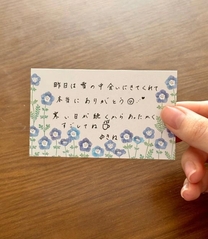 昨日は雪の中会いにきてくれて
本当にありがとう
寒い日が続くからあったかく
すごしてね
あきね